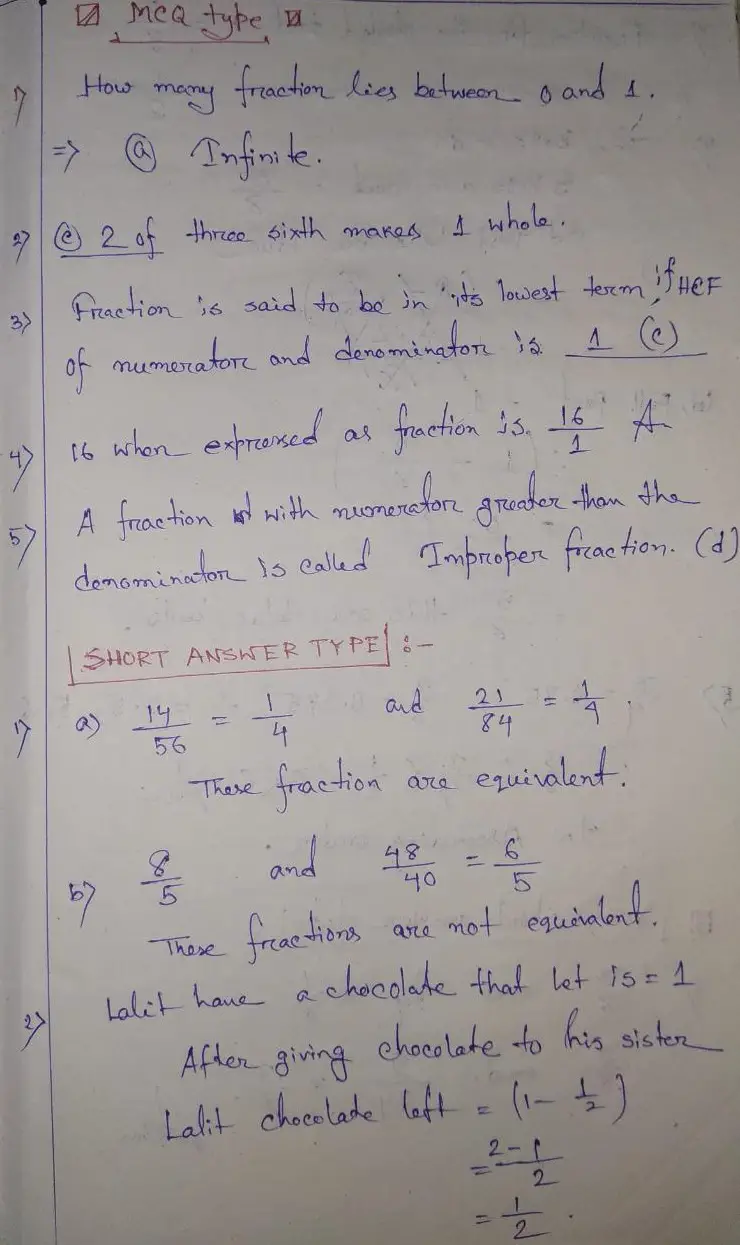 MCQ type
1) How many fraction lies between 0 and 1.
=> (a) Infinite.
2) (c) 2 of three sixth makes 1 whole.
3) Fraction is said to be in its lowest term if HCF
of numerator and denominator is 1 (c)
4) 16 when expressed as fraction is 16/1 A
5) A fraction with numerator greater than the
denominator is called Improper fraction. (d)
SHORT ANSWER TYPE :-
1) a) 14/56 = 1/4 and 21/84 = 1/4.
These fraction are equivalent.
b) 8/5 and 48/40 = 6/5
These fractions are not equivalent.
2) Lalit have a chocolate that let is = 1
After giving chocolate to his sister
Lalit chocolate left = (1 - 1/2)
= 2-1/2
= 1/2.